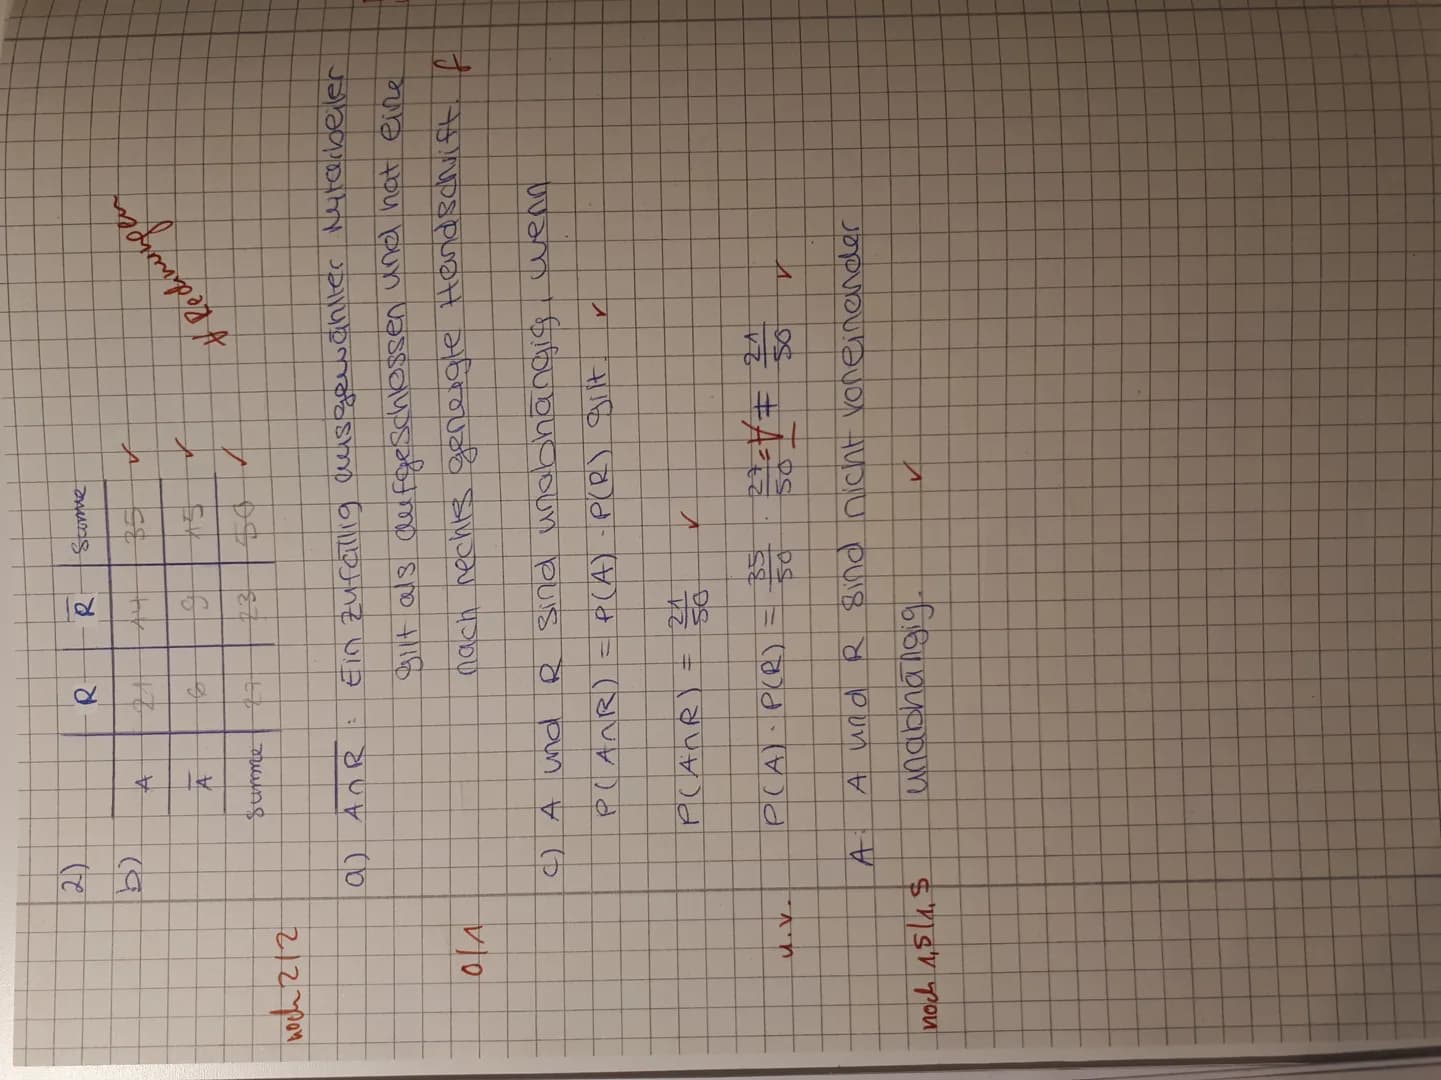 2)
b)
R R̅ Summe
A 21 14 35 ✓
A̅ 6 9 15 ✓
Summe 27 23 50 ✓
noch 2/2
a) A∩R̅ : Ein zufällig ausgewählter Mitarbeiter
gilt als aufgeschlossen und hat eine
nach rechts geneigte Handschrift. f
0/1
c) A und R sind unabhängig, wenn
P(A∩R) = P(A) · P(R) gilt. ✓
P(A∩R) = 21/50 ✓
u.v. P(A) · P(R) = 35/50 · 27/50 = ≠ 21/50 ✓
A: A und R sind nicht voneinander
unabhängig. ✓
noch 1,5/1,5